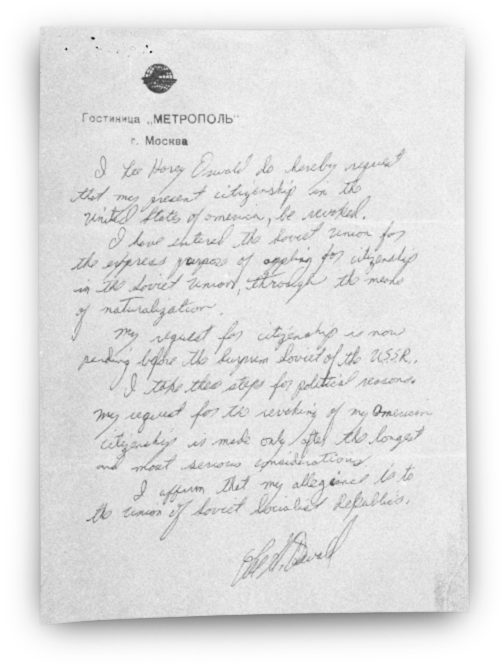 Гостиница „МЕТРОПОЛЬ"
г. Москва
I Lee Harey Oswald do hereby request
that my present citizenship in the
United States of america, be revoked.
I have entered the Soviet Union for
the express purpose of appling for citizenship
in the Soviet Union, through the means
of naturalization.
My request for citizenship is now
pending before the Surprem Soviet of the U.S.S.R.
I take these steps for political reasons.
My request for the revoking of my American
citizenship is made only after the longest
and most serious considerations.
I affirm that my allegiance is to
the Union of Soviet Socialist Republics.
Lee H. Oswald